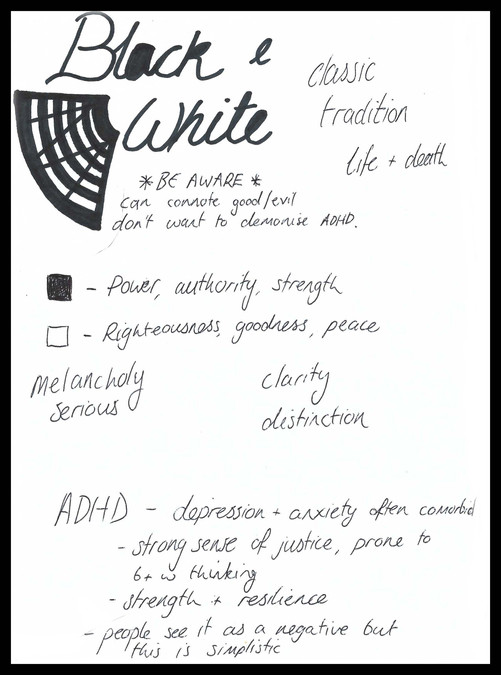 Black &
White
classic
tradition
life + death
*BE AWARE*
can connote good/evil
don't want to demonise ADHD.
- Power, authority, strength
- Righteousness, goodness, peace
melancholy
serious
clarity
distinction
ADHD - depression + anxiety often comorbid
- strong sense of justice, prone to
b+w thinking
- strength + resilience
- people see it as a negative but
this is simplistic